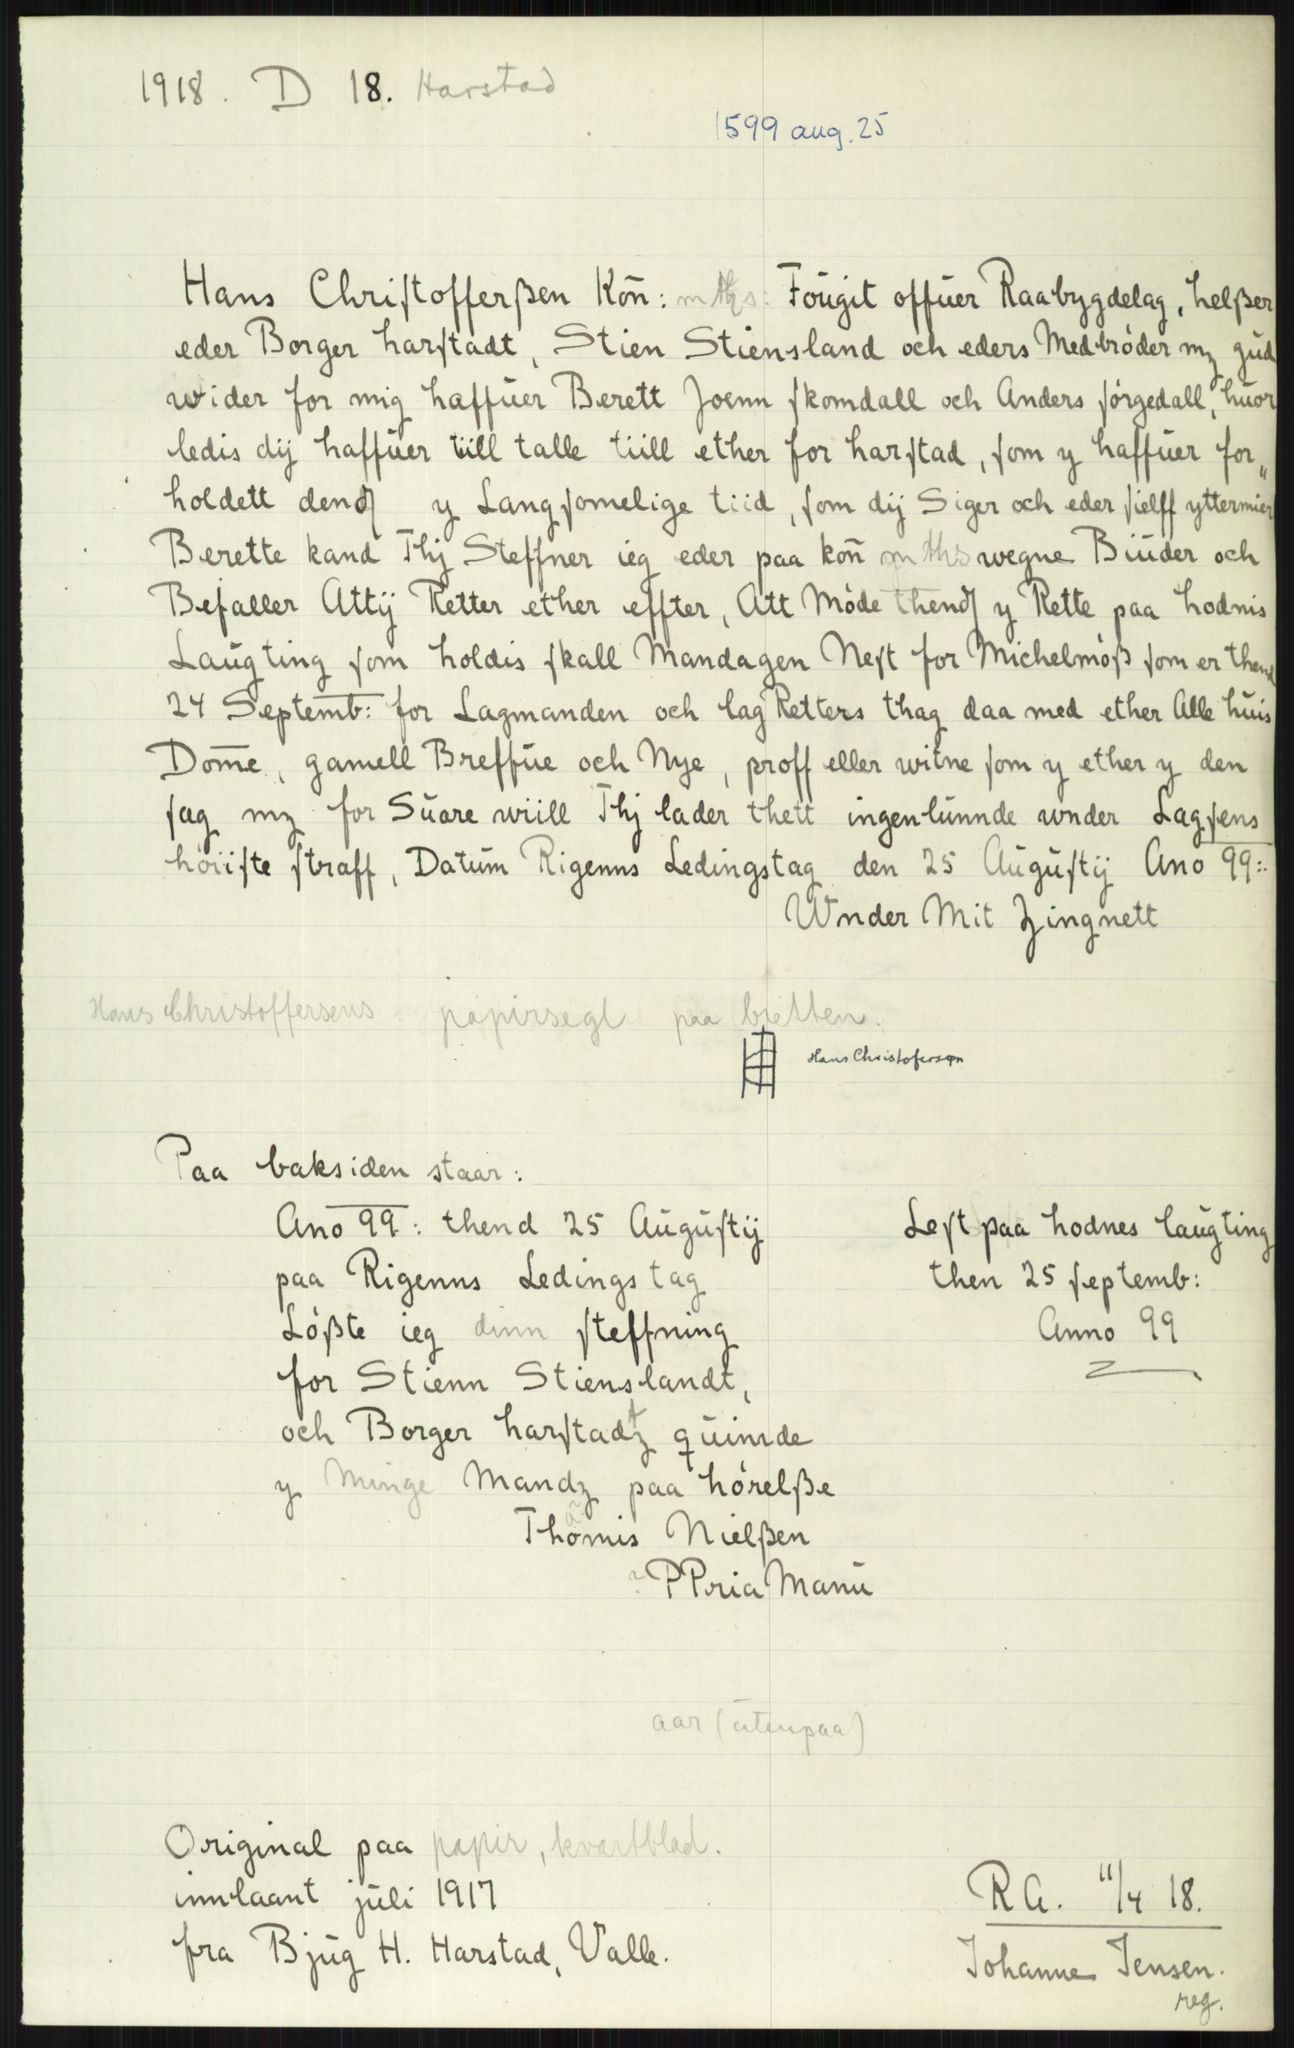 1918. D 18. Harstad
1599 aug. 25
Hans Chriſtofferßen Kon̄: mtz: Foŭgit offŭer Raabygdelag, helßer
eder Borger harſtadt, Stien Stiensland och eders Medbróder mz gŭd
wider for mig haffŭer Berett Joenn ſkomdall och Anders ſórgedall, hŭor
ledis dij haffŭer till talle tiill ether for harſtad, ſom y haffŭer for„
holdett dend y Langſomelige tiid, ſom dij Siger och eder ſielff yttermier
Berette kand Thj Steffner ieg eder paa kon̄ mths wegne Biŭder och
Befaller Attij Retter ether effter, Att Móde thend y Rette paa hodnis
Laŭgting ſom holdis ſkall Mandagen Neſt for Michelmöß ſom er thend
24 Septemb: for Lagmanden och lag Retters thag daa med ether Alle hŭis
Dom̄e, gamell Breffŭe och Nye, proff eller witne ſom y ether y den
ſag mz for Sŭare wiill Thj lader thett ingenlŭnnde wnder Lagſens
hóiiſte ſtraff, Datŭm Rigenns Ledingstag den 25 Aŭgŭſtij Ano 99:
Wnder Mit Zingnett
Hans Christoffersens papirsegl paa bretten.
Hans Christofersøn
Paa baksiden staar:
Ano 99: thend 25 Aŭgŭſtij
paa Rigenns Ledings tag
Lóßte ieg dinn ſteffning
for Stienn Stienslandt,
och Borger harſtadtz qŭinde
y Minge Mandz paa hórelße
Thomis Nielßen
? PPria Manŭ
Leſt paa hodnes laŭgting
then 25 ſeptemb:
Anno 99
aar (utenpaa)
Original paa papir, kvartblad.
innlaant jŭli 1917
fra Bjŭg H. Harstad, Valle.
RA. 11/4 18.
Johanne Jensen.
reg.